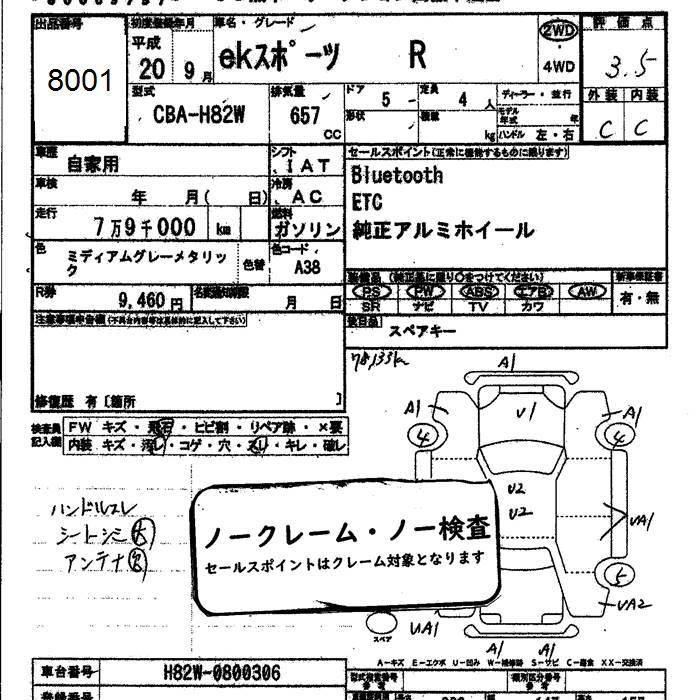 出品番号
8001
初度登録年月
平成
20 9月
車名・グレード
ekスポーツ R
2WD
4WD
評価点
3.5
外装 内装
C C
型式
CBA-H82W
排気量
657
CC
ドア
5
定員
4人
形状
積載
kg
ディーラー・並行
モデル年式
年
ハンドル 左・右
車歴
自家用
シフト
IAT
車検
年 月( 日)
冷房
AC
走行
7万9千000 km
燃料
ガソリン
色
ミディアムグレーメタリック
色替
色コード
A38
R券
9,460円
名義変更期限
月 日
セールスポイント(正常に機能するものに限ります)
Bluetooth
ETC
純正アルミホイール
装備品 (純正品に限り○をつけてください)
新車保証書
PS PW ABS エアB AW
SR ナビ TV カワ
有・無
後日品
スペアキー
注意事項申告欄(不具合内容等は具体的に記入して下さい)
修復歴 有〔箇所 〕
検査員記入欄
FW キズ・飛石・ヒビ割・リペア跡・×要
内装 キズ・汚レ・コゲ・穴・スレ・キレ・破レ
78,133km
A1
A1
V1
A1
4
4
U2
U2
UA1
5
UA2
UA1
A1
A1
スペア
ハンドルスレ
シートシミ大
アンテナ欠
ノークレーム・ノー検査
セールスポイントはクレーム対象となります
A-キズ E-エクボ U-凹み W-補修跡 S-サビ C-腐食 XX-交換済
車台番号
H82W-0800306
登録番号
型式指定番号
類別区分番号